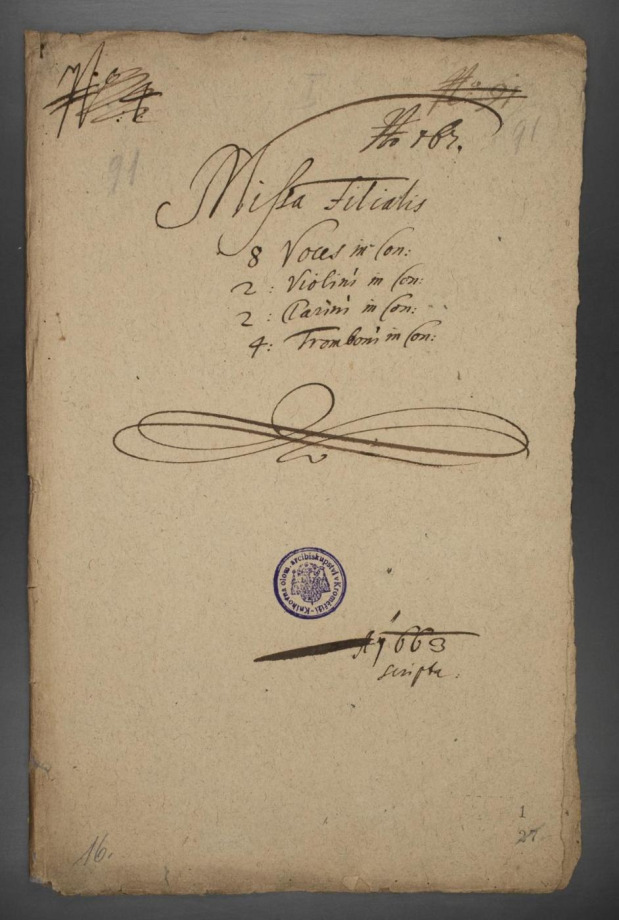 91
No 91
91
Missa Filialis
8 Voces in Con:
2: Violini in Con:
2: Clarini in Con:
4: Tromboni in Con:
Knihovna olom. arcibiskupství v Kroměříži
A 1663
scripta.
16.
1
27.